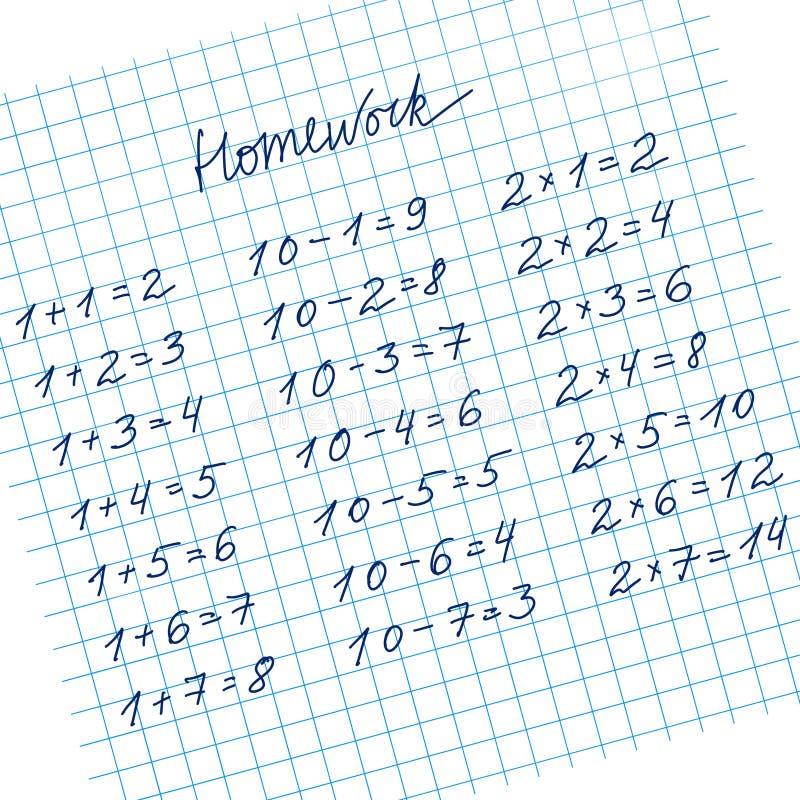 Homework
1+1=2
1+2=3
1+3=4
1+4=5
1+5=6
1+6=7
1+7=8
10-1=9
10-2=8
10-3=7
10-4=6
10-5=5
10-6=4
10-7=3
2×1=2
2×2=4
2×3=6
2×4=8
2×5=10
2×6=12
2×7=14
dreamstime.